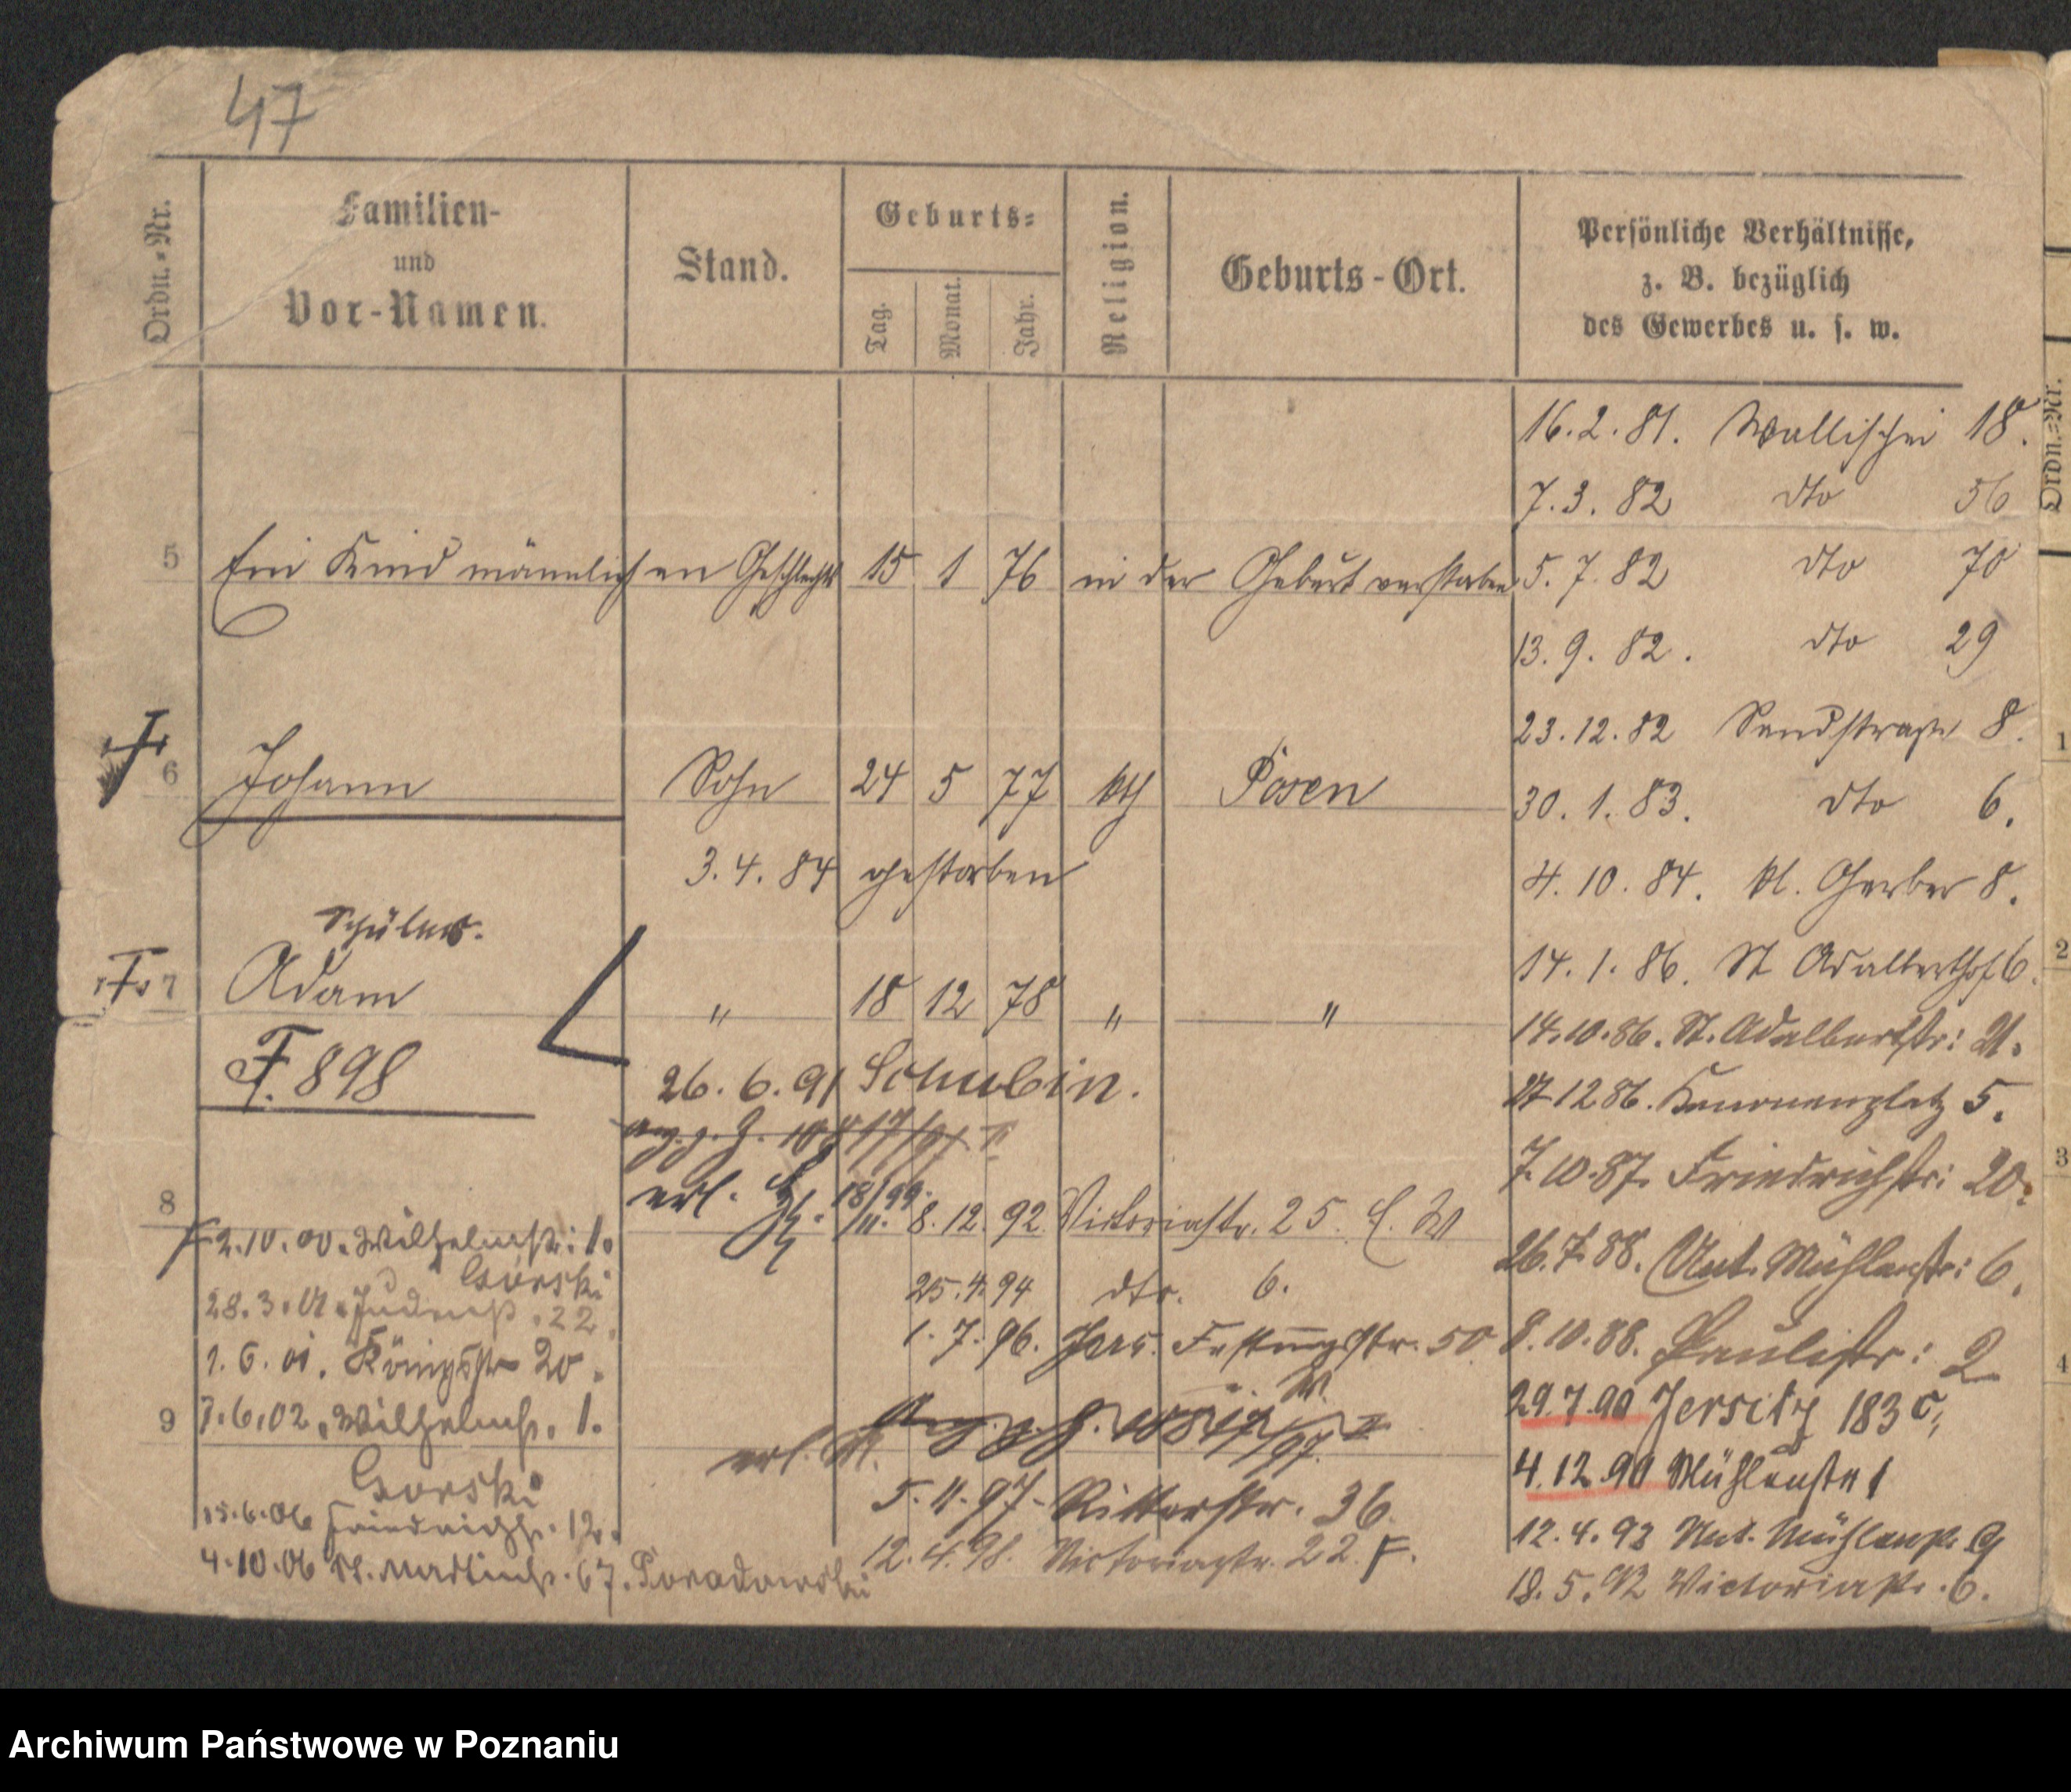 47
Ordn.-Nr.
Familien-
und
Vor-Namen.
Stand.
Geburts-
Tag.
Monat.
Jahr.
Religion.
Geburts-Ort.
Persönliche Verhältnisse,
z. B. bezüglich
des Gewerbes u. s. w.
16. 2. 81. Wallischei 18.
7. 3. 82 dto 56
5 Ein Kind männlichen Geschlechts 15 1 76 in der Geburt verstorben
5. 7. 82 dto 70
13. 9. 82. dto 29
23. 12. 82 Sandstraße 8.
6 Johann Sohn 24 5 77 kth Posen
30. 1. 83. dto 6.
3. 4. 84 gestorben
4. 10. 84. kl. Gerber 8.
Schüler.
7 Adam " 18 12 78 " "
14. 1. 86. St Adalberthof 6.
14. 10. 86. St. Adalbertstr: 21.
F. 898
26. 6. 91 Schubin.
27 12 86. Kanonenplatz 5.
7. 10. 87. Friedrichstr: 20.
erl. 18/11. 99.
8
8. 12. 92 Victoriastr. 25.
26. 7. 88. Unt. Mühlenstr: 6.
2. 10. 00. Wilhelmstr: 1.
Gorski
25. 4. 94 dto. 6.
28. 3. 01. Judenstr. 22.
1. 7. 96. Jers. Festungstr. 50
8. 10. 88. Paulistr: 2
1. 6. 01. Königstr 20.
29. 7. 90 Jersitz 183 c,
9
7. 6. 02. Wilhelmstr. 1.
erl.
4. 12. 90 Mühlenstr 1
Gorski
5. 11. 97 - Ritterstr. 36
12. 4. 92 Unt. Mühlenstr. 9
15. 6. 06 Friedrichstr. 12.
12. 4. 98. Victoriastr. 22. F.
18. 5. 92 Victoriastr. 6.
4. 10. 06 St. Martinstr. 67. Poradowski
Ordn.-Nr.
1
2
3
4
Archiwum Państwowe w Poznaniu